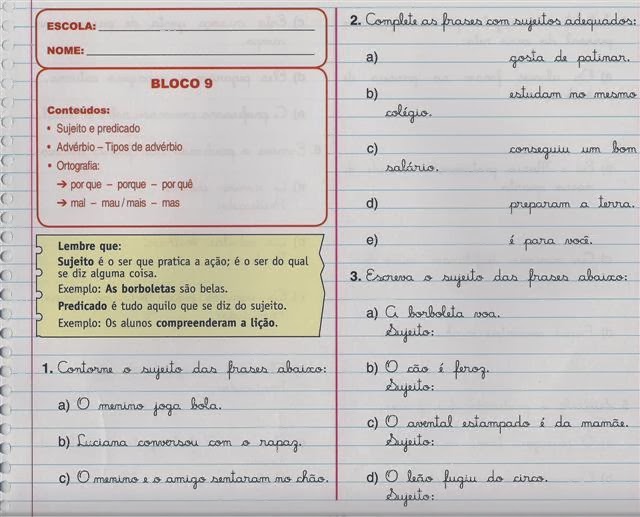 ESCOLA:
NOME:
BLOCO 9
Conteúdos:
• Sujeito e predicado
• Advérbio – Tipos de advérbio
• Ortografia:
➔ por que – porque – por quê
➔ mal – mau / mais – mas
Lembre que:
Sujeito é o ser que pratica a ação; é o ser do qual
se diz alguma coisa.
Exemplo: As borboletas são belas.
Predicado é tudo aquilo que se diz do sujeito.
Exemplo: Os alunos compreenderam a lição.
1. Contorne o sujeito das frases abaixo:
a) O menino joga bola.
b) Luciana conversou com o rapaz.
c) O menino e o amigo sentaram no chão.
2. Complete as frases com sujeitos adequados:
a) gosta de patinar.
b) estudam no mesmo
colégio.
c) conseguiu um bom
salário.
d) preparam a terra.
e) é para você.
3. Escreva o sujeito das frases abaixo:
a) A borboleta voa.
Sujeito:
b) O cão é feroz.
Sujeito:
c) O avental estampado é da mamãe.
Sujeito:
d) O leão fugiu do circo.
Sujeito: